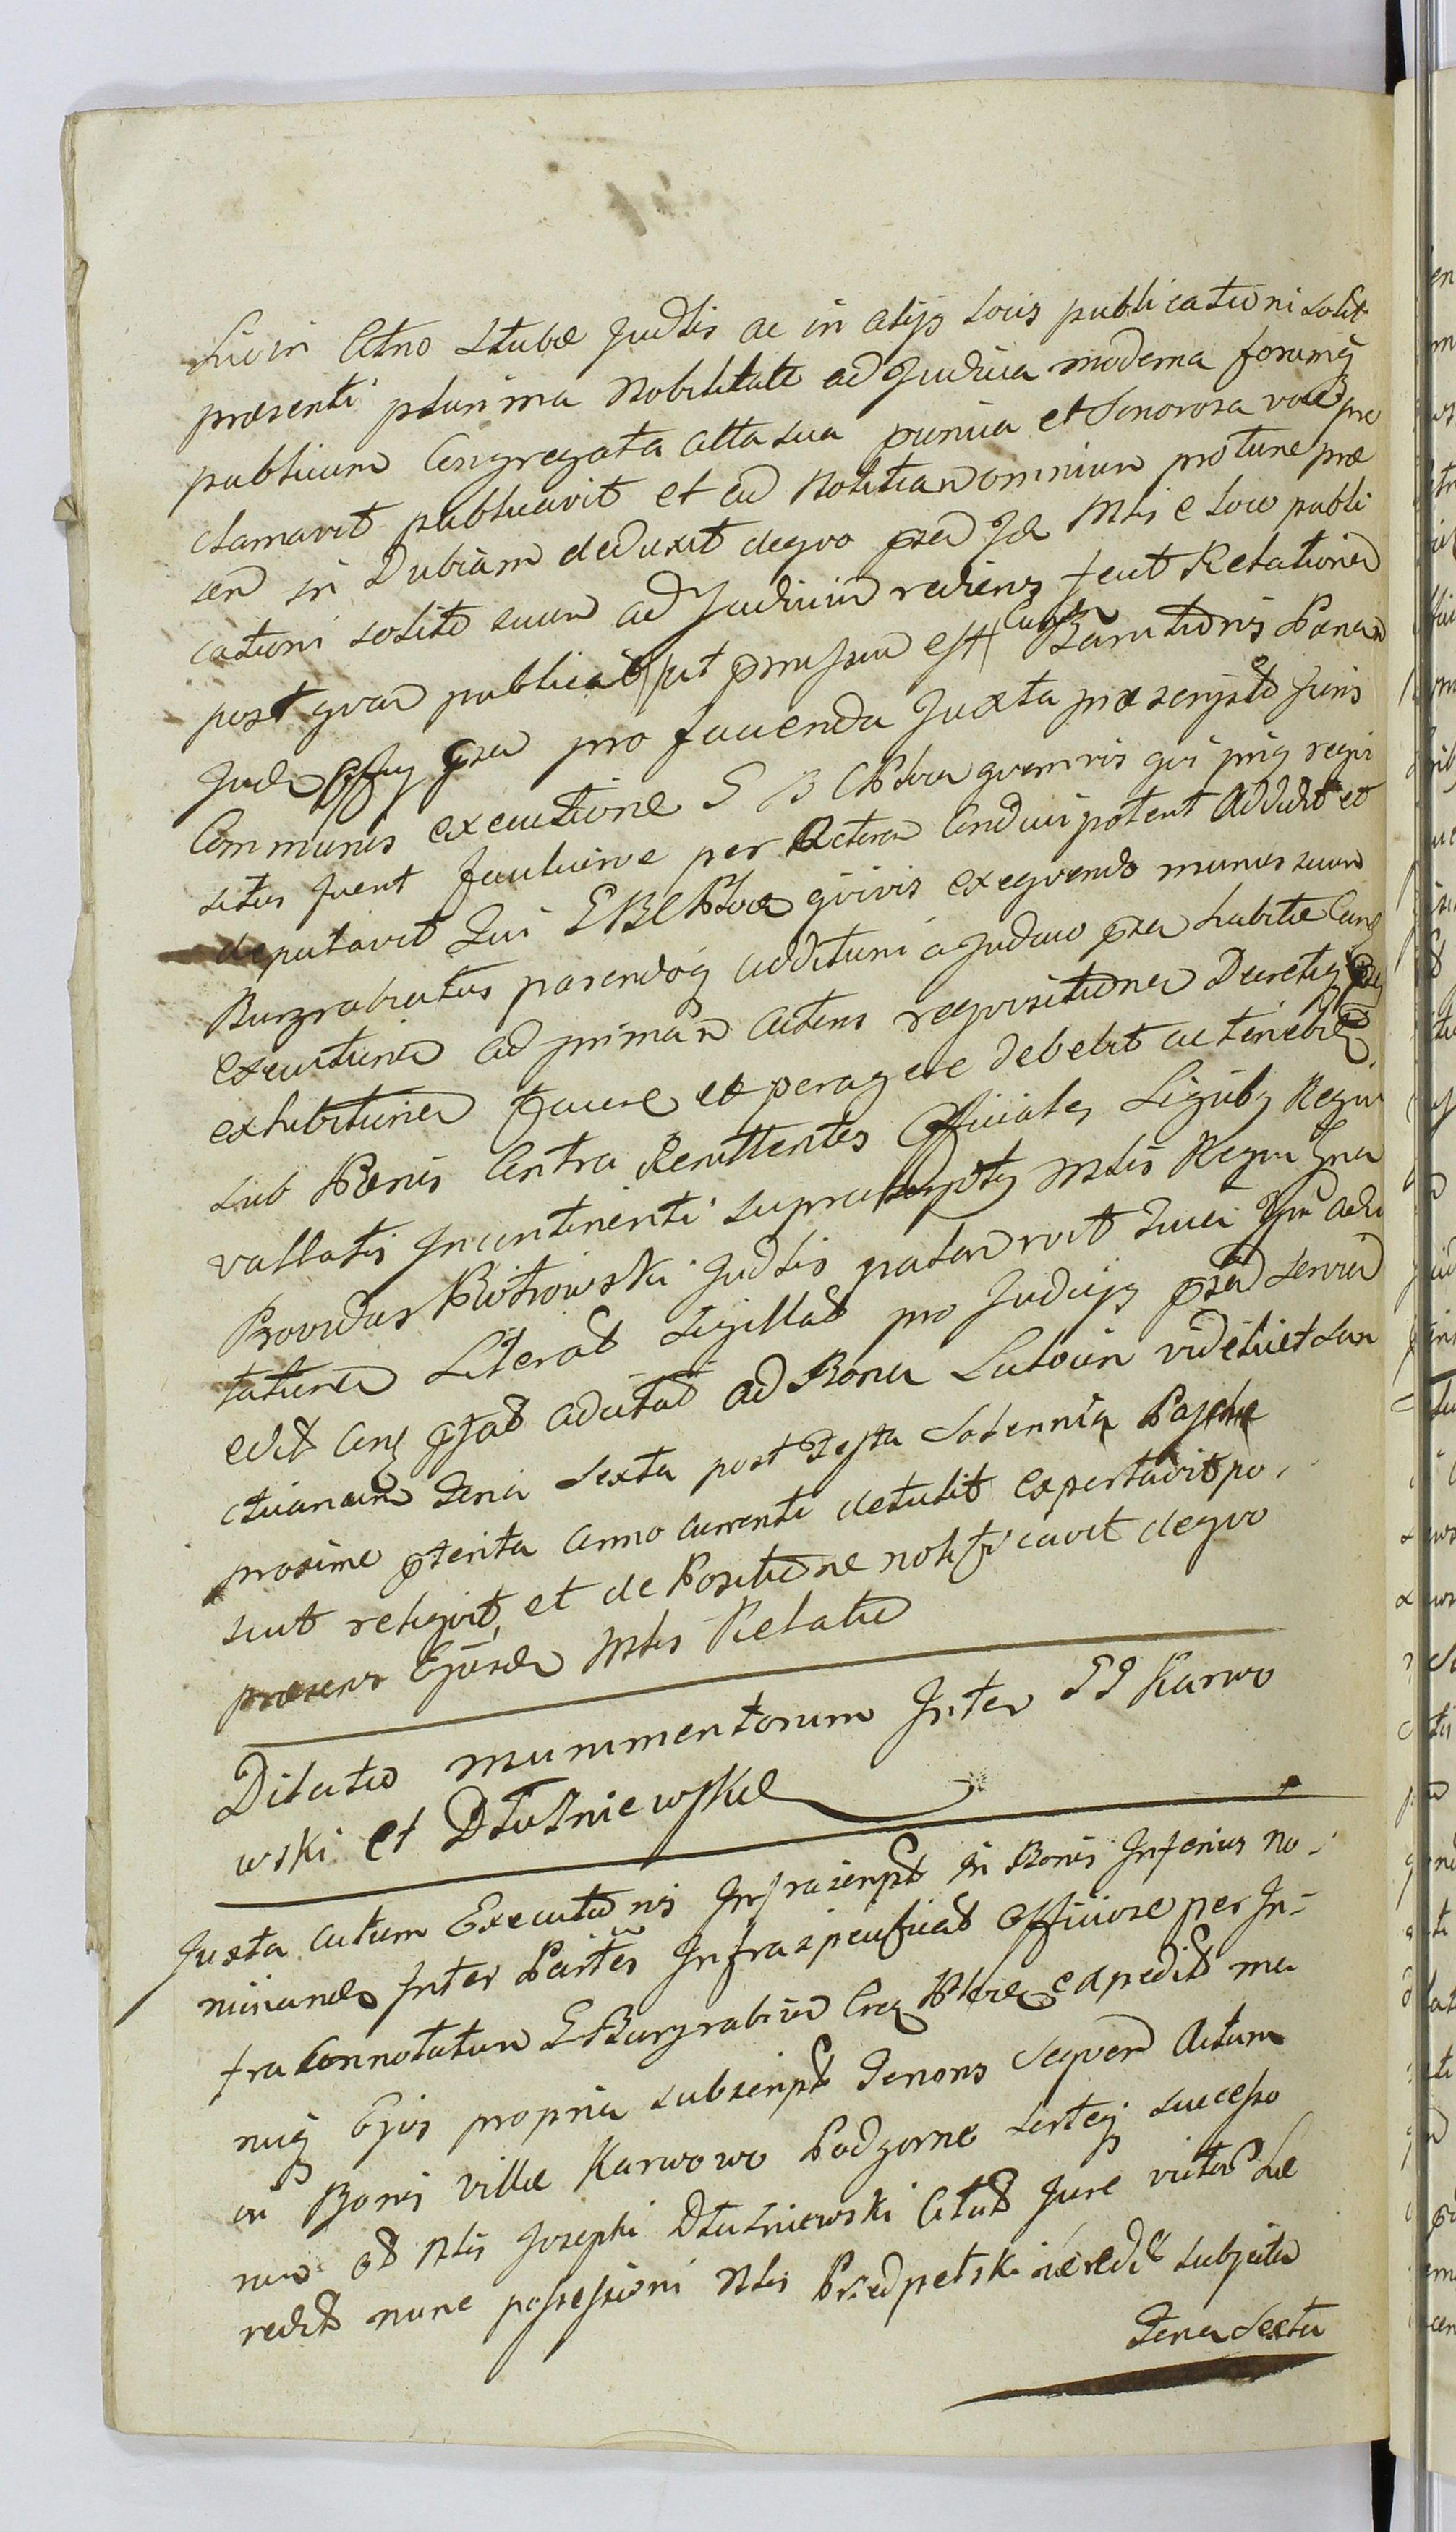 suo in Actno Stubæ Judlis ac in alijs Locis publicationi solit
præsenti plurima Nobilitate ad Judicia moderna forumq
publicum Congregata alta sua punica et Sonorosa voce pro
clamavit publicavit et ad Notitiam omnium protunc præ
sen in Dubiam deduxit deqvo præd Jd Mtis e Loco publi
cationi solito suum ad Judicium rediens fecit Relationem
post qvam publicat ut præmissum est Banitionis Pænam
Jud Offiy præd pro facienda Juxta præscripto Juris
Communis executione S B C Plocen qvemvis qvi priq reqvi
situs fuerit facultative per Actorem Conduci potent Addidit et
deputavit Qui S B C Plocen qvivis exeqvendo munus suum
Burgrabiatus parendoq additum a Judicio præd habitæ Conq
executionem ad primam actens reqvisitionem Decretiq
exhibitionem facere et peragere debebit ac tenebit
sub Pænis Contra Renittentes Officiales Legibq Regni
vallatis Incontinenti suprascriptq Mtis Regni Gna
Providus Piotrowski Judlis palam vit Quia Ipse
tationem Literat Sigillat pro Judicijs præd servien
edit Conq adcitat ad Bona Lutocin videlicet San
ctuarium Feria Sexta post Festa Solennia Paschæ
proxime præterita Anno currenti detulit exportavit po
suit reliqvit, et de Positione notificavit deqvo
præsens Ejusd Mtis Relatio
Dilatio munimentorum Inter GG Karwo
wski et Dłużniewskie
Juxta Actum Executionis Infrascript in Bonis Inferius no
minand Inter Partes Infraspecificat Officiose per In
fra Connotatum S Burgrabium Crem Plocen expedit ma
nuq Ejus propria subscript Tenoris Seqven Actum
in Bonis villæ Karwowo Podgorne Sorteq successo
rum Mtis Josephi Dłużniewski Citat Jure victor hæ
redit nunc possessioni Mtis Przedpełski hæredit subjecta
Feria Sexta